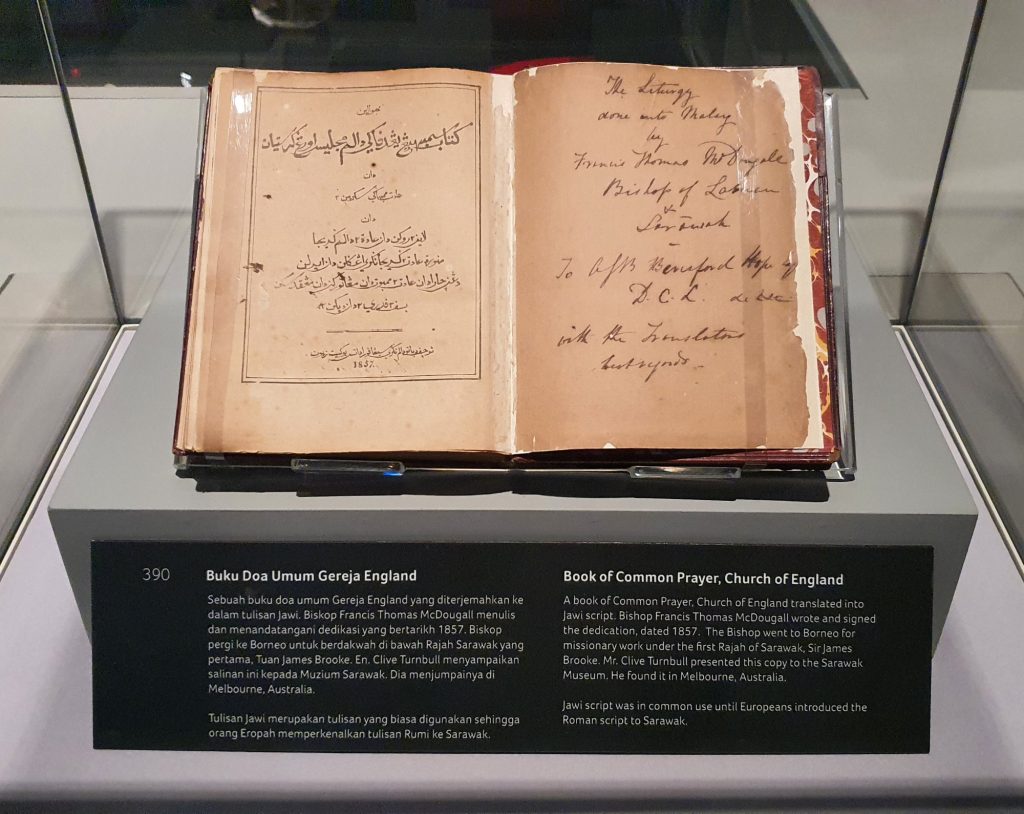 بهوا اين
كتاب سمبهيڠ يڠدڤاكي دالم مجليس اورڠ كرستيان
دان
دان
1857
The Liturgy
done into Malay
by
Francis Thomas McDougall
Bishop of Labuan
&
Sarawak
To AJB Beresford Hope
D.C.L.
with the Translators
best regards
390
Buku Doa Umum Gereja England
Sebuah buku doa umum Gereja England yang diterjemahkan ke
dalam tulisan Jawi. Biskop Francis Thomas McDougall menulis
dan menandatangani dedikasi yang bertarikh 1857. Biskop
pergi ke Borneo untuk berdakwah di bawah Rajah Sarawak yang
pertama, Tuan James Brooke. En. Clive Turnbull menyampaikan
salinan ini kepada Muzium Sarawak. Dia menjumpainya di
Melbourne, Australia.
Tulisan Jawi merupakan tulisan yang biasa digunakan sehingga
orang Eropah memperkenalkan tulisan Rumi ke Sarawak.
Book of Common Prayer, Church of England
A book of Common Prayer, Church of England translated into
Jawi script. Bishop Francis Thomas McDougall wrote and signed
the dedication, dated 1857. The Bishop went to Borneo for
missionary work under the first Rajah of Sarawak, Sir James
Brooke. Mr. Clive Turnbull presented this copy to the Sarawak
Museum. He found it in Melbourne, Australia.
Jawi script was in common use until Europeans introduced the
Roman script to Sarawak.